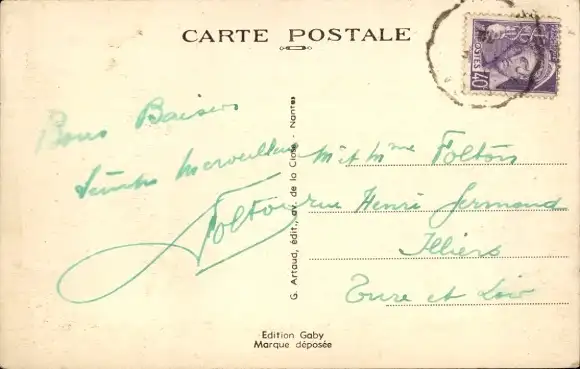 CARTE POSTALE
POSTES 40
Bons Baisers
Merveilleux
Foltou
G. Artaud, édit., av. de la Close - Nantes
Mr et Mme Folton
rue Henri Germond
Illiers
Eure et Loir
Edition Gaby
Marque déposée